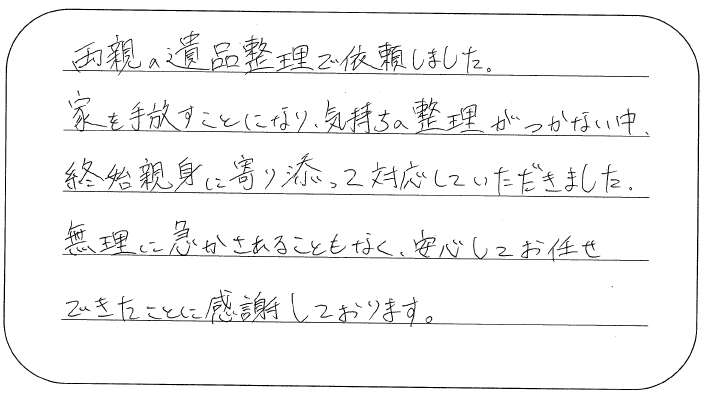 両親の遺品整理で依頼しました。
家を手放すことになり、気持ちの整理がつかない中、
終始親身に寄り添って対応していただきました。
無理に急かされることもなく、安心してお任せ
できたことに感謝しております。